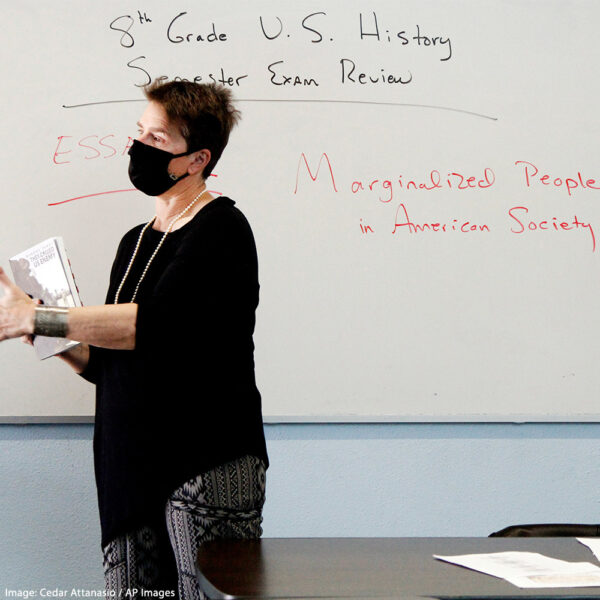 8th Grade U.S. History
Semester Exam Review
ESSA
Marginalized People
in American Society
THEY CALLED
US ENEMY
Image: Cedar Attanasio / AP Images